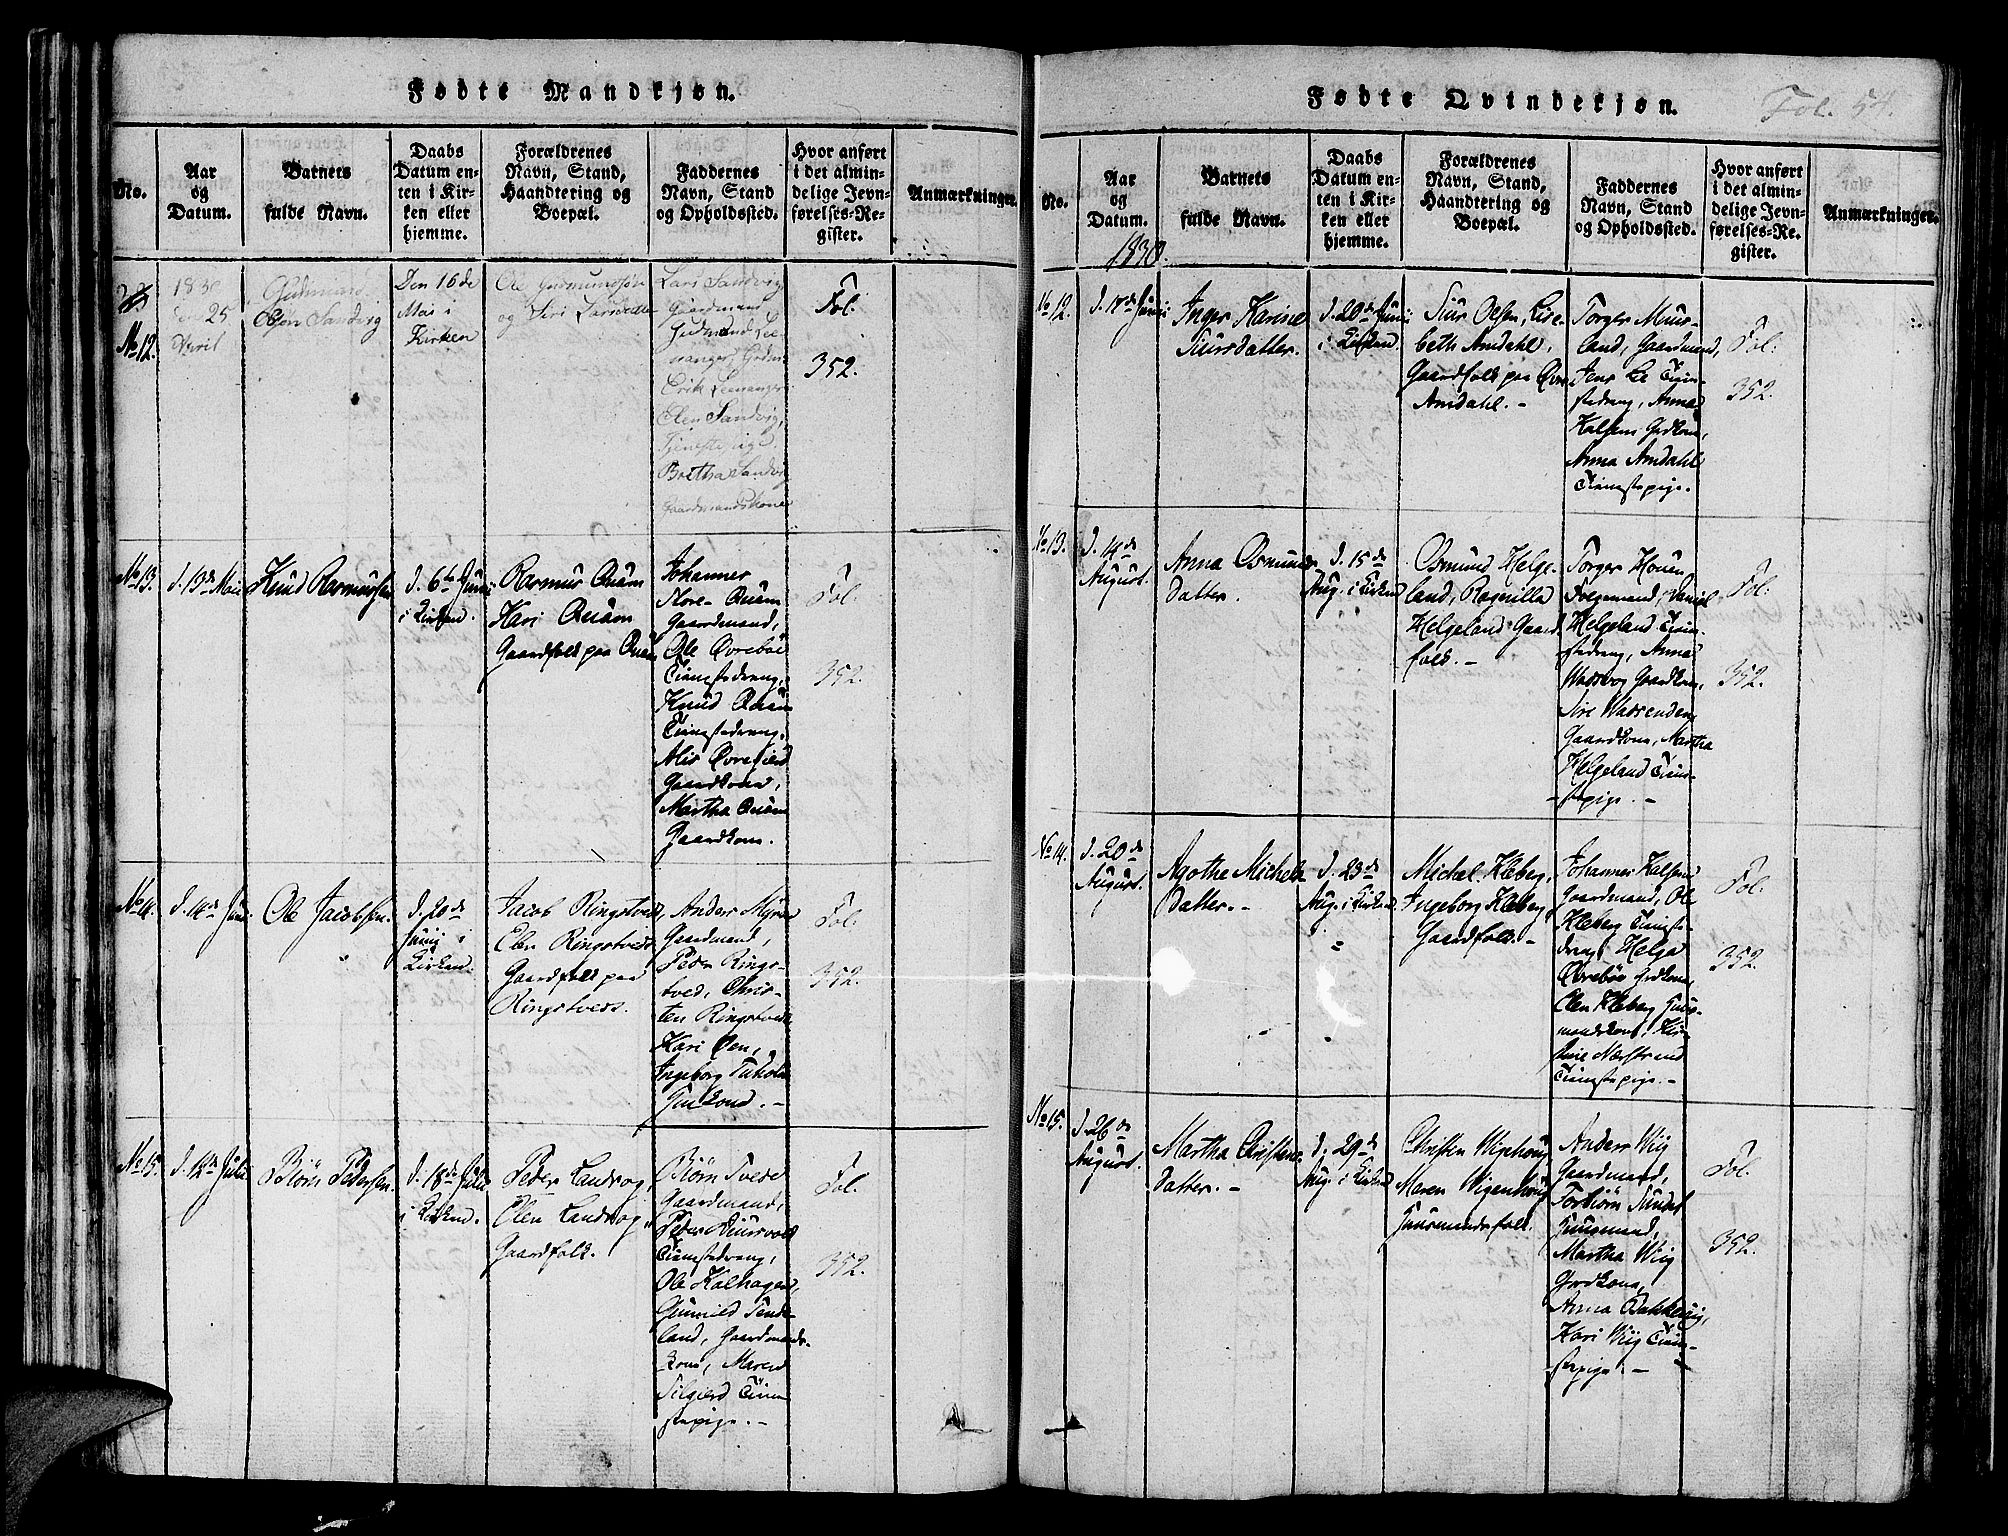 Fødte Mandkjøn.
No.
Aar
og
Datum.
Barnets
fulde Navn.
Daabs
Datum en-
ten i Kir-
ken eller
hjemme.
Forældrenes
Navn, Stand,
Haandtering og
Boepæl.
Faddernes
Navn, Stand
og Opholdssted.
Hvor anført
i det almin-
delige Jevn-
førelses-Re-
gister.
Anmærkninger.
No 12.
1830
25
April
Gudmund
Olsen Sandvig
Den 16de
Mai i
Kirken
Ole Gudmundsøn
og Siri Larsdatter
Lars Sandvig
Gaardmand
Gudmund Lee-
vanger
Erik Leevanger
Elen Sandvig,
Tjenestepige
Brethe Sandvig
Gaardmandskone
Fol.
352.
No 13.
d. 13de Maii
Knud Rasmussen
d. 6te Junii
i Kirken.
Rasmus Quam
Kari Quam
Gaardfolk paa Quam
Johannes
Flore- Quam
Gaardmand,
Ole Øvrebøe
Tienestedreng,
Knud Quam
Tienestedreng,
Alis
Gaardkone,
Martha Quam
Gaardkone.
Fol.
352.
No 14.
d. 14de Junii
Ole Jacobsen.
d. 20de
Junij i
Kirken.
Jacob Ringstveds
Elen Ringstveds
Gaardfolk paa
Ringstveds.
Anders Myren
Gaardmand,
Peder Rings-
tved, Chris-
ten Ringstveds
Kari Øen,
Ingeborg
Fol.
352.
No 15.
d. 12te Julii
Biørn Pedersen.
d. 18de Julii
i Kirken.
Peder Landrog
Elen Landrog
Gaardfolk.
Biørn Tvede
Gaardmand,
Peder
Tienestedreng,
Ole Kalhagen,
Gunnild Tende-
land, Gaardmands-
kone, Maren
Silgierd Tiene-
stepige. -
Fol.
352.
Fødte Qvindekjøn.
Fol. 54.
No.
Aar
og
Datum.
1830.
Barnets
fulde Navn.
Daabs
Datum en-
ten i Kir-
ken eller
hjemme.
Forældrenes
Navn, Stand,
Haandtering og
Boepæl.
Faddernes
Navn, Stand
og Opholdssted.
Hvor anført
i det almin-
delige Jevn-
førelses-Re-
gister.
Anmærkninger.
No 12.
Inger Karine
Siursdatter.
d. 20de Junii
i Kirken.
Siur Olsen, Lise-
beth Amdahl,
Gaardfolk paa Øvre
Amdahl. -
Torger Muus-
land, Gaardmand,
Jens Lee Tiene-
stedreng, Anna
Kalsem Grdkone,
Anna Amdahl
Tienestepige.
Fol.
352.
No 13.
d. 14de
August.
Anna Osmunds-
Datter.
d. 15de
Aug. i Kirken
Osmund Helge-
land, Ragnilla
Helgeland Gaard-
folk. -
Torger Houen
Folgemand, Daniel
Helgeland Tiene-
stedreng, Anna
Gaardkone,
Sire Wadsenden
Gaardkone, Martha
Helgeland Tiene-
stepige. -
Fol.
352.
No 14.
d. 20de
August.
Agothe Michels
Datter. -
d. 23de
Aug. i Kirken.
Michel Kleberg,
Ingeborg Kleberg,
Gaardfolk. -
Johannes Kalsem
Gaardmand, Ole
Kleberg Tieneste-
dreng, Helga
Øvrebøe Grdkone,
Elen Kleberg Huus-
mandskone, Kir-
stine Nærstrand
Tienestepige. -
Fol.
352.
No 15.
d. 26de
August.
Martha Christens-
Datter. -
d. 29de
Aug. i Kirken
Christen Wigenhoug
Maren Wigenhoug
Huusmandsfolk.
Anders Wiig
Gaardmand,
Torbiørn Sundet
Huusmand,
Martha Wiig
Grdkone,
Anna Bakkevig,
Kari Wiig Tiene-
stepige. -
Fol.
352.